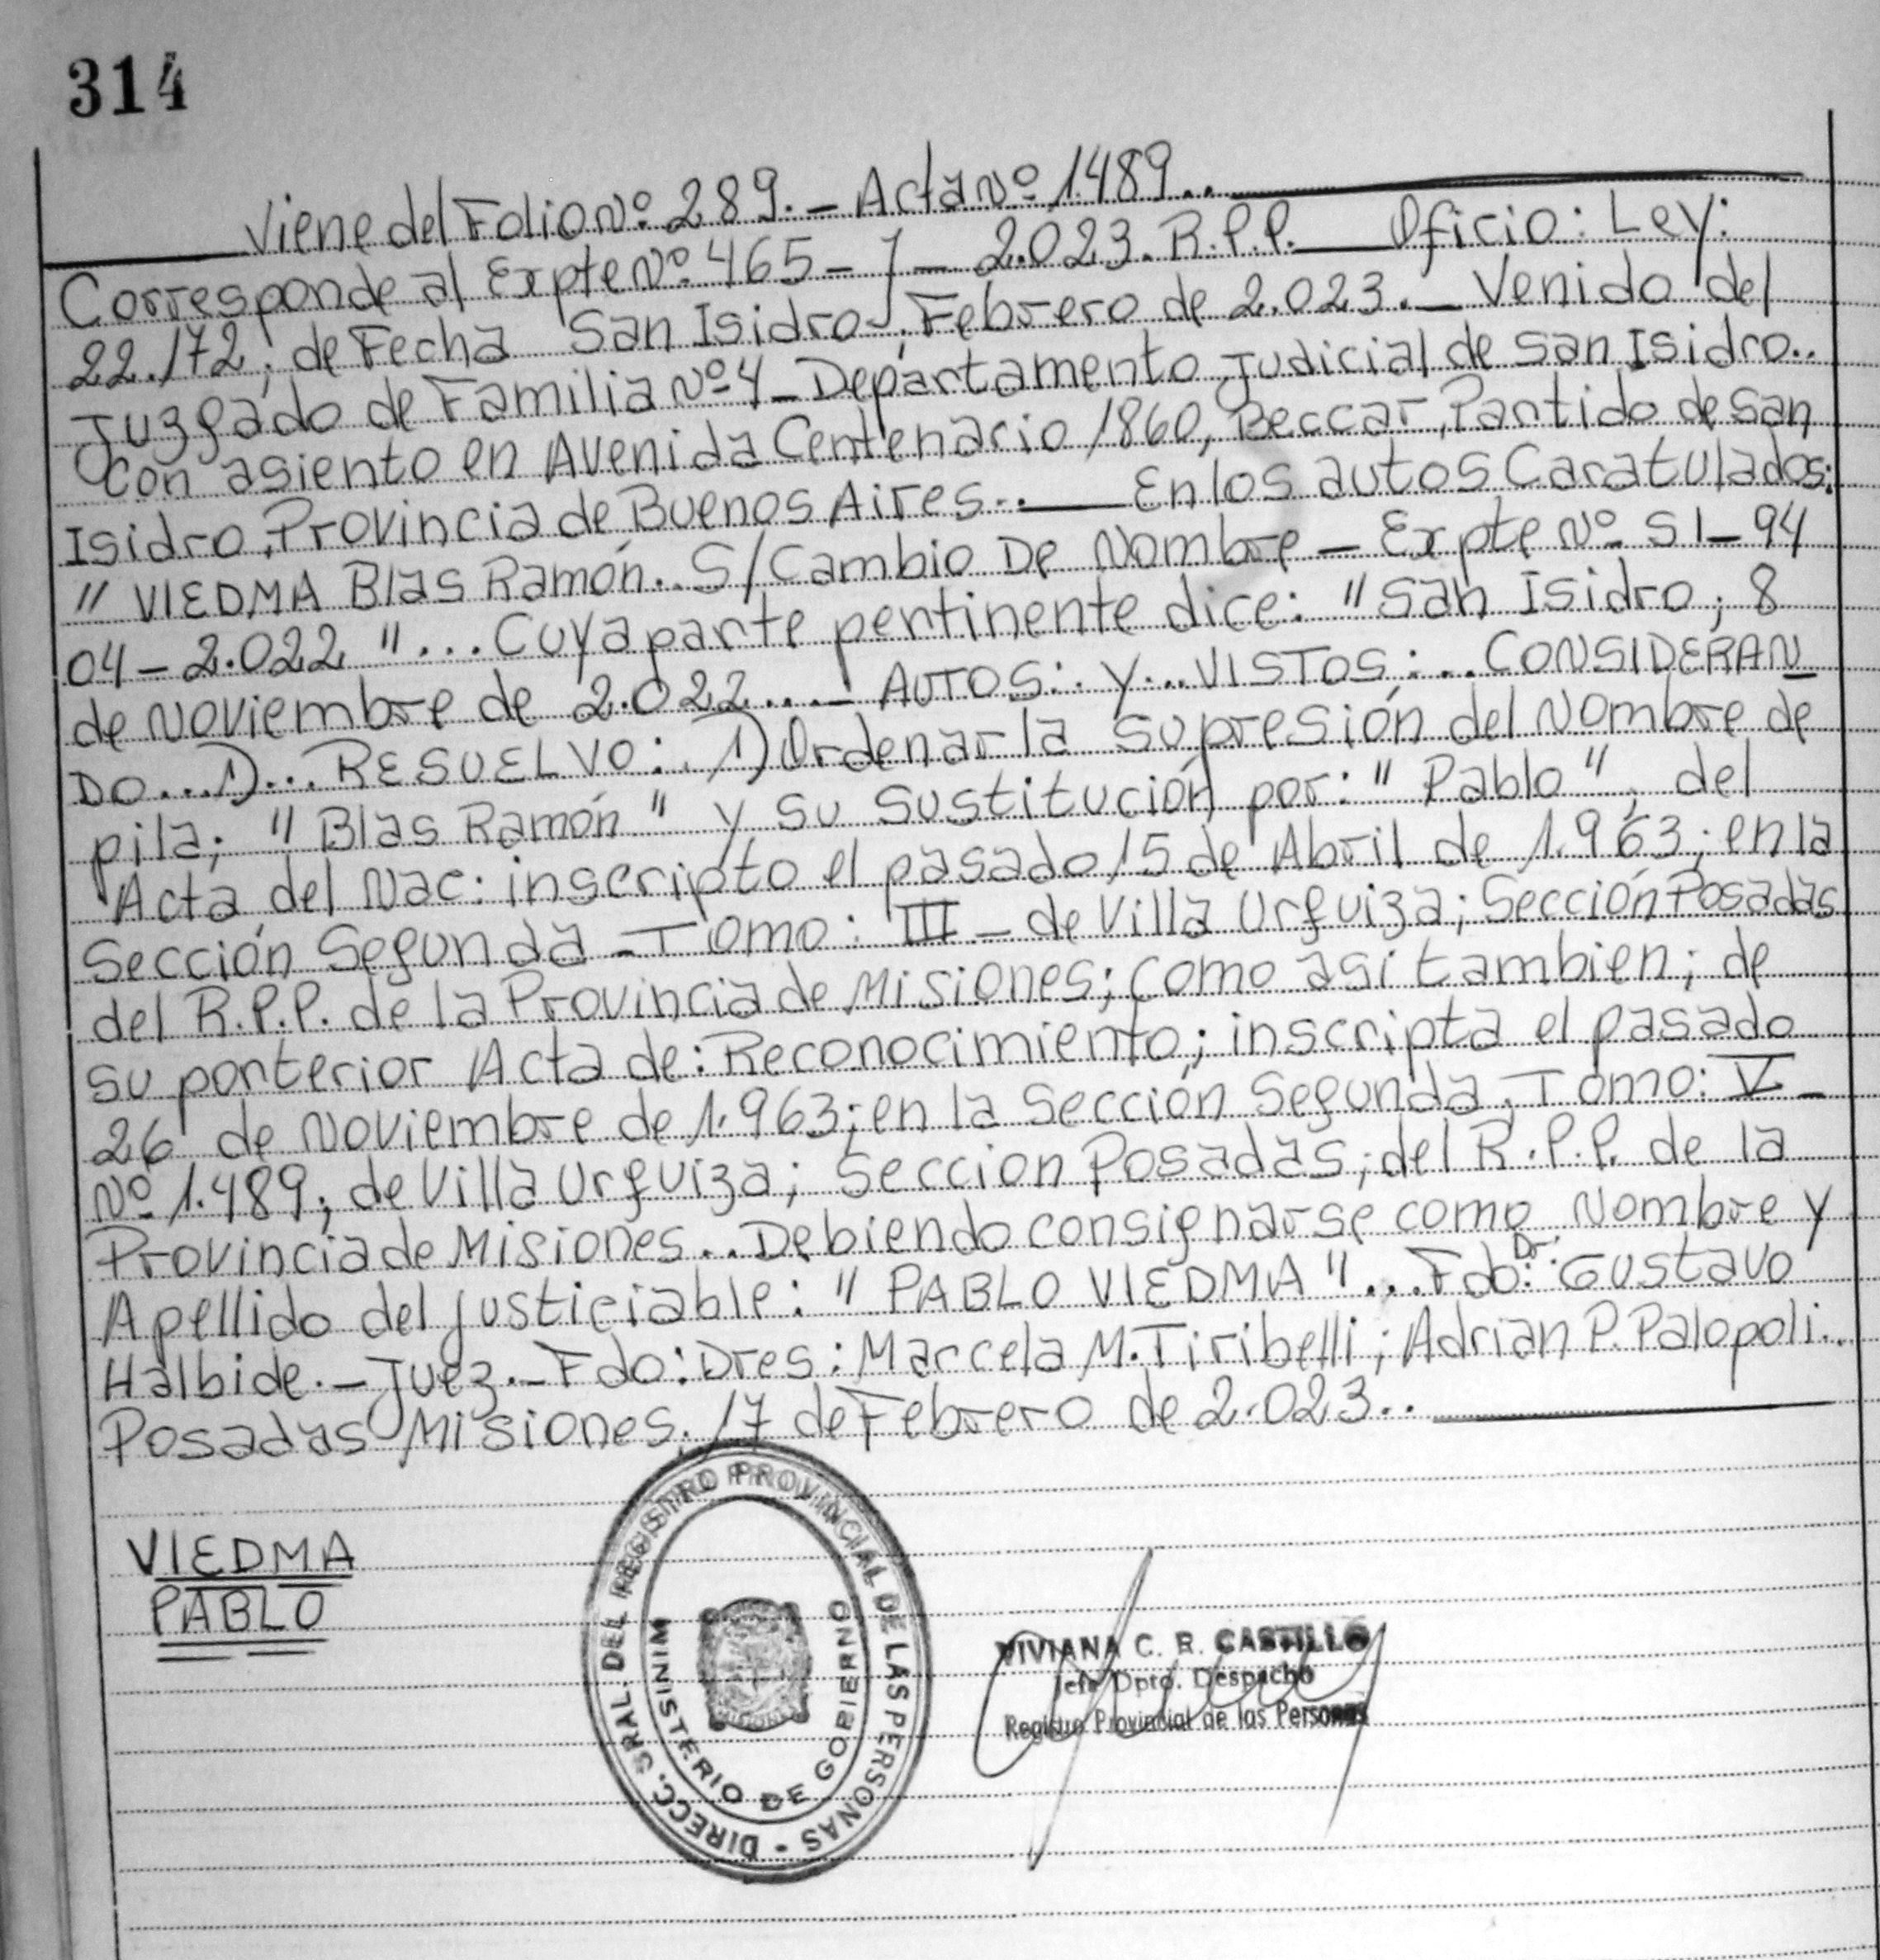 314
Viene del Folio Nº: 289. - Acta Nº 1.489..
Corresponde al Expte Nº 465 - J - 2.023. R.P.P. Oficio: Ley:
22.172; de Fecha San Isidro, Febrero de 2.023. - Venido del
Juzgado de Familia Nº 4 - Departamento Judicial de San Isidro..
Con asiento en Avenida Centenario 1860, Beccar, Partido de San
Isidro, Provincia de Buenos Aires.. En los autos Caratulados:
" VIEDMA Blas Ramón.. S/Cambio De Nombre - Expte Nº SI - 94
04 - 2.022 "... Cuya parte pertinente dice: "San Isidro; 8
de Noviembre de 2.022.... AUTOS:. y... VISTOS:... CONSIDERAN
DO... 1)... RESUELVO:. 1) Ordenar la supresión del Nombre de
pila; "Blas Ramón" y su sustitución por: " Pablo ", del
Acta del Nac: inscripto el pasado 15 de Abril de 1.963; en la
Sección Segunda - Tomo: III - de Villa Urquiza; Sección Posadas
del R.P.P. de la Provincia de Misiones; como así tambien; de
su ponterior Acta de: Reconocimiento; inscripta el pasado
26 de Noviembre de 1.963; en la Sección Segunda, Tomo: V -
Nº 1.489; de Villa Urquiza; Seccion Posadas; del R.P.P. de la
Provincia de Misiones.. Debiendo consignarse como Nombre y
Apellido del justiciable: " PABLO VIEDMA "... Fdo: Dr. Gustavo
Halbide. - Juez. - Fdo: Dres: Marcela M. Tiribelli; Adrian P. Palopoli..
Posadas Misiones, 17 de Febrero de 2.023..
VIEDMA
PABLO
DIRECC. GRAL. DEL REGISTRO PROVINCIAL DE LAS PERSONAS -
MINISTERIO DE GOBIERNO
VIVIANA C. R. CASTILLO
Jefe Dpto. Despacho
Registro Provincial de las Personas